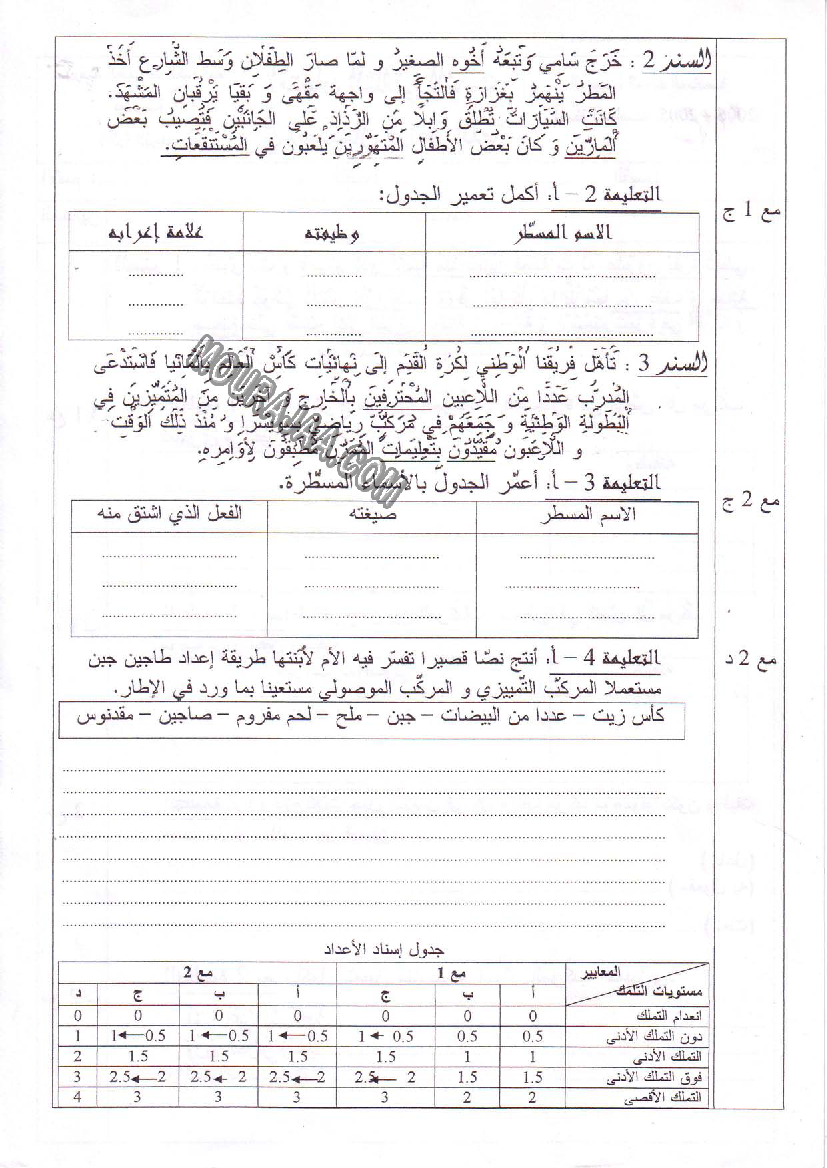 السند 2 : خَرَجَ سَامِي وَتَبِعَهُ أَخُوه الصغيرُ و لمّا صارَ الطِفْلَانِ وَسَط الشَّارِعِ أَخَذَ
المَطَرُ يَنْهَمِرُ بِغَزَارَةٍ فَالتَجَأَ إلى واجهة مَقْهَى وَ بَقِيَا يَرْقُبَانِ المَشْهَدَ.
كَانَتْ السَيَّارَاتُ تُطْلِقُ وَابِلاً مِنَ الرَّذَاذِ عَلَى الجَانِبَيْنِ فَتُصِيبُ بَعْضَ
الْمَارِّينَ وَ كَانَ بَعْضُ الأَطْفَالِ المُتَهَوِّرِينَ يَلْعَبُون في المُسْتَنْقَعَات.
التعليمة 2 – أ: أكمل تعمير الجدول:
مع 1 ج
الاسم المسطّر وظيفته علامة إعرابه
السند 3 : تَأَهَّلَ فَرِيقُنَا الْوَطَنِي لِكُرَةِ الْقَدَمِ إِلَى نِهَائِيَّاتِ كَأْسِ الْعَالَمِ بِأَلْمَانْيَا فَاسْتَدْعَى
المُدَرِّبُ عَدَدًا مِنَ اللَّاعِبِين المُحْتَرِفِينَ بِالْخَارِجِ وَ آخَرِينَ مِنَ المُتَمَيِّزِينَ فِي
الْبُطُولَةِ الْوَطَنِيَّةِ وَ جَمَعَهُمْ فِي مُرَكَّبٍ رِيَاضِيٍّ بِسْوِيسْرَا وَ مُنْذُ ذَلِكَ الْوَقْتِ
و اللَّاعِبُون مُقَيَّدُونَ بِتَعْلِيمَاتِ المُمَرِّنِ مُطَبِّقُونَ لِأَوَامِرِهِ.
التعليمة 3 – أ: أعمّر الجدول بالأسماء المسطّرة.
مع 2 ج
الاسم المسطر صيغته الفعل الذي اشتق منه
التعليمة 4 – أ: أنتج نصّا قصيرا تفسّر فيه الأم لأبنتها طريقة إعداد طاجين جبن
مع 2 د
مستعملا المركبّ التّمييزي و المركّب الموصولي مستعينا بما ورد في الإطار.
كأس زيت – عددا من البيضات – جبن – ملح – لحم مفروم – صاجين – مقدنوس
جدول إسناد الأعداد
المعايير مع 1 مع 2
مستويات التملك أ ب ج أ ب ج د
انعدام التملك 0 0 0 0 0 0 0
دون التملك الأدنى 0.5 0.5 0.5←1 0.5←1 0.5←1 0.5←1 1
التملك الأدنى 1 1 1.5 1.5 1.5 1.5 2
فوق التملك الأدنى 1.5 1.5 2←2.5 2←2.5 2←2.5 2←2.5 3
التملك الأقصى 2 2 3 3 3 3 4
MOURAJAA.COM